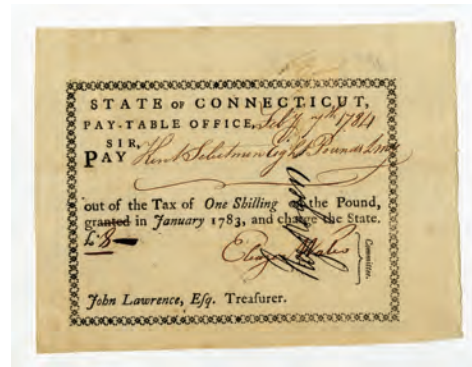 STATE OF CONNECTICUT,
PAY-TABLE OFFICE, Feb 7th 1784
SIR,
PAY Kent Selectmen Eight Pounds
out of the Tax of One Shilling on the Pound,
granted in January 1783, and charge the State.
£8
Eleazr Wales
Committee.
John Lawrence, Esq. Treasurer.